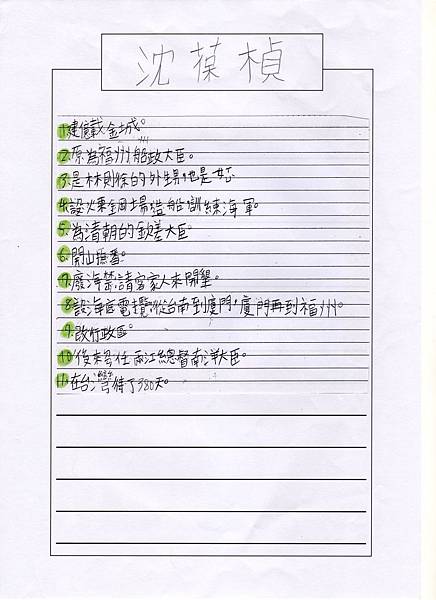 沈葆楨
1.建億載金城。
2.原為福州船政大臣。
3.是林則徐的外甥,也是女
4.設煉鋼場造船,訓練海軍。
5.為清朝的欽差大臣
6.開山撫番。
7.廢海禁請客家人來開墾。
8.設海底電纜,從台南到廈門,廈門再到福州。
9.改行政區。
10.後來多任兩江總督南洋大臣。
11.在台灣待了380天。